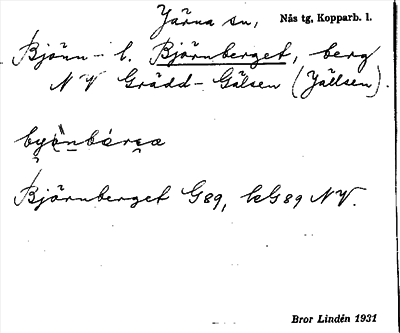 Järna sn, Nås tg, Kopparb. l.
Björn- l. Björnberget, berg
NV Grädd-Gälsen (Jällsen).
Björnberget G89, kG89 NV.
Bror Lindén 1931